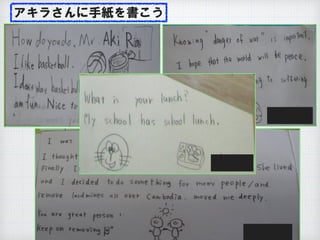 アキラさんに手紙を書こう
How do you do, Mr. Aki Ra
I like basketball.
I play basketball
am fun. Nice to
Knowing "danger of war" is important.
I hope that the world will be peace.
is suffering
What is your lunch?
My school has school lunch.
I was
I thought
Finally I
She lived
and I decided to do something for many people/and
remove landmines all over Cambodia, moved me deeply.
You are great person!
Keep on removing